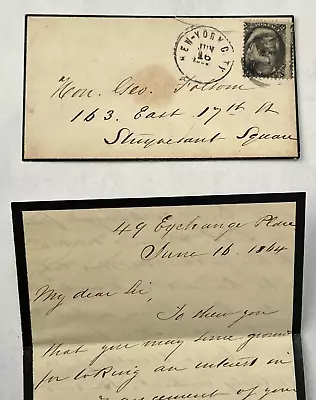 NEW-YORK CITY
JUN
16
Hon. Geo. Folsom
163. East 17th St
Stuyvesant Square
49 Exchange Place
June 16. 1864
My dear Sir,
To shew you
that you may have ground
for looking an interest in
of your